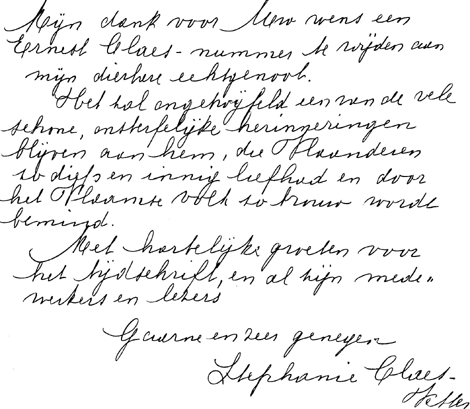 Mijn dank voor Uw wens een
Ernest Claes-nummer te wijden aan
mijn dierbare echtgenoot.
Het zal ongetwijfeld een van de vele
schone, onsterfelijke herinneringen
blijven aan hem, die Vlaanderen
zo diep en innig liefhad en door
het Vlaamse volk zo trouw wordt
bemind.
Met hartelijke groeten voor
het tijdschrift, en al zijn mede-
werkers en lezers
Gaarne en zeer genegen
Stephanie Claes-
Vetter